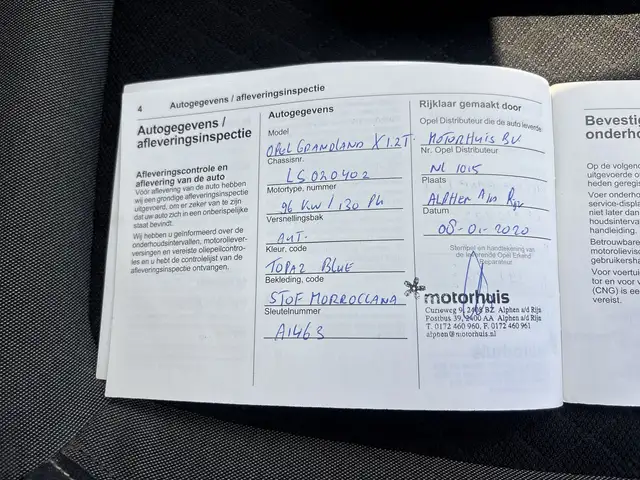 4 Autogegevens / afleveringsinspectie
Autogegevens /
afleveringsinspectie
Afleveringscontrole en
aflevering van de auto
Vóór aflevering van de auto hebben
wij een grondige afleveringsinspectie
uitgevoerd, om er zeker van te zijn
dat uw auto zich in een onberispelijke
staat bevindt.
Wij hebben u geïnformeerd over de
onderhoudsintervallen, motoroliever-
versingen en vereiste oliepeilcontro-
les en u hebt de controlelijst van de
afleveringsinspectie ontvangen.
Autogegevens
Model
OPEL GRANDLAND X 1.2T
Chassisnr.
LS020402
Motortype, nummer
96 KW / 130 PK
Versnellingsbak
AUT.
Kleur, code
TOPAZ BLUE
Bekleding, code
STOF MORROCCANA
Sleutelnummer
A1463
Rijklaar gemaakt door
Opel Distributeur die de auto leverde
MOTORHUIS BV
Nr. Opel Distributeur
NL 1015
Plaats
ALPHEN A/D RIJN
Datum
08-01-2020
Stempel en handtekening van
de leverende Opel Erkend
Reparateur
motorhuis
Curieweg 9, 2408 BZ Alphen a/d Rijn
Postbus 39, 2400 AA Alphen a/d Rijn
T. 0172 460 960, F. 0172 460 961
alphen@motorhuis.nl
Bevestig
onderho
Op de volgen
uitgevoerde o
heden geregis
Voer onderho
service-displa
niet later dan
houdsinterva
handleiding.
Betrouwbare
motorolievisc
gebruikershan
Voor voertui
tor en voor v
(CNG) is ee
vereist.